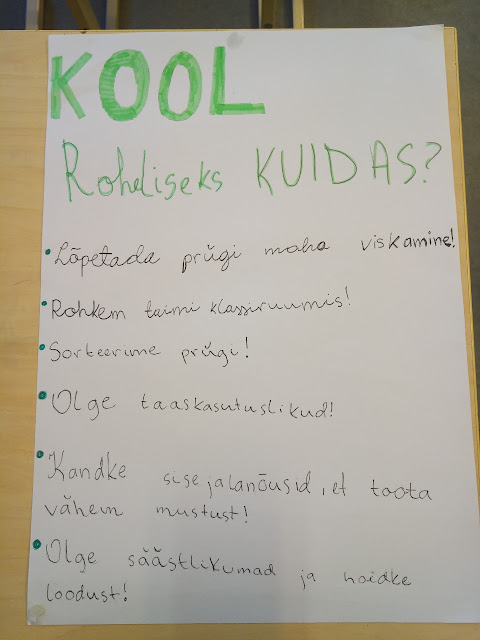 KOOL
Roheliseks KUIDAS?
Lõpetada prügi maha viskamine!
Rohkem taimi klassiruumis!
Sorteerime prügi!
Olge taaskasutuslikud!
Kandke sisejalanõusid, et toota
vähem mustust!
Olge säästlikumad ja hoidke
loodust!